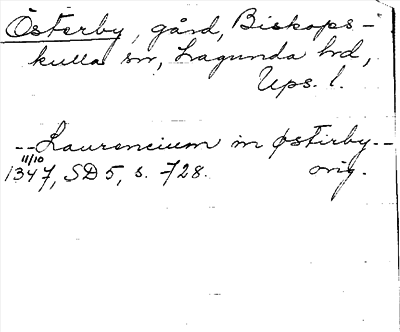 Österby, gård, Biskops-
kulla sn, Lagunda hd,
Ups. l.
--Laurencium in Østirby.--
11/10
1347, SD 5, s. 728. orig.